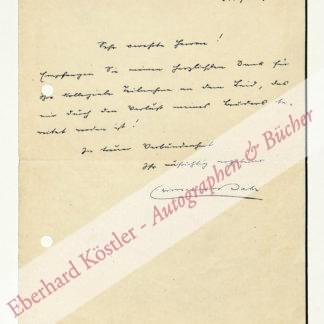 Sehr verehrte Herren!
Empfangen Sie meinen herzlichsten Dank für
Ihre kollegiale Teilnahme an dem Leid, das
mir durch den Verlust meines Bruders be-
reitet worden ist!
In treuer Verbundenheit
Ihr aufrichtig
Eberhard Köstler - Autographen & Bücher